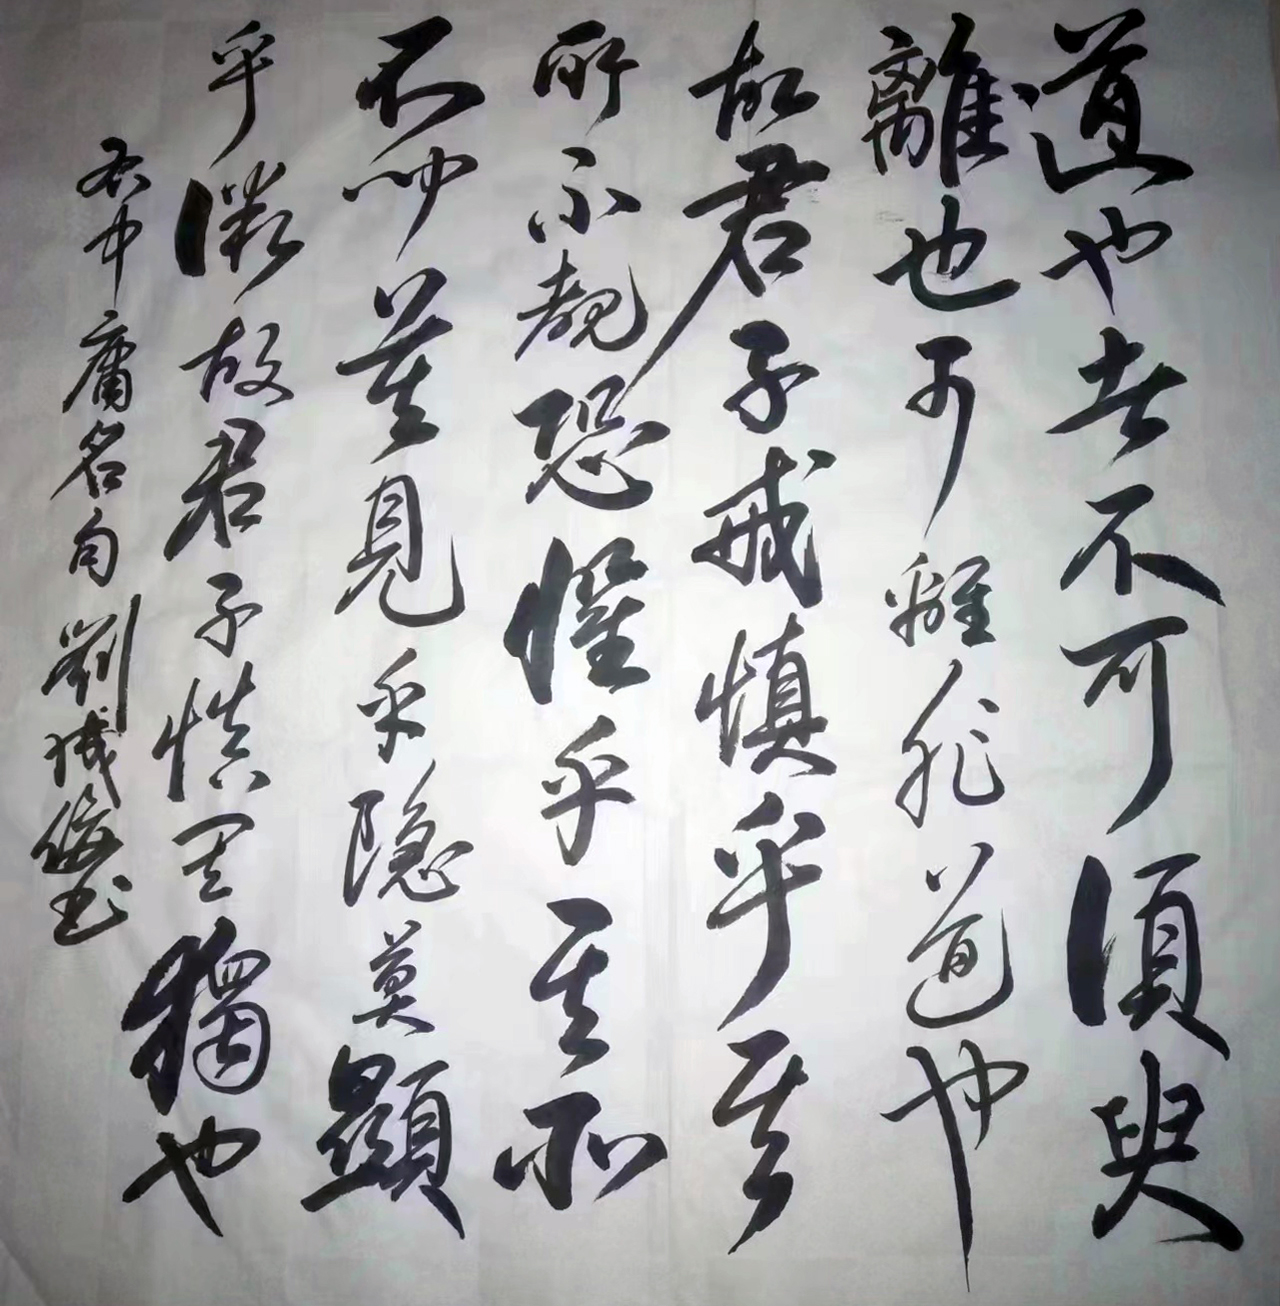 道也者不可須臾
離也可離非道也
故君子戒慎乎其
所不覩恐懼乎其所
不聞莫見乎隱莫顯
乎微故君子慎其獨也
右中庸名句劉成俊書